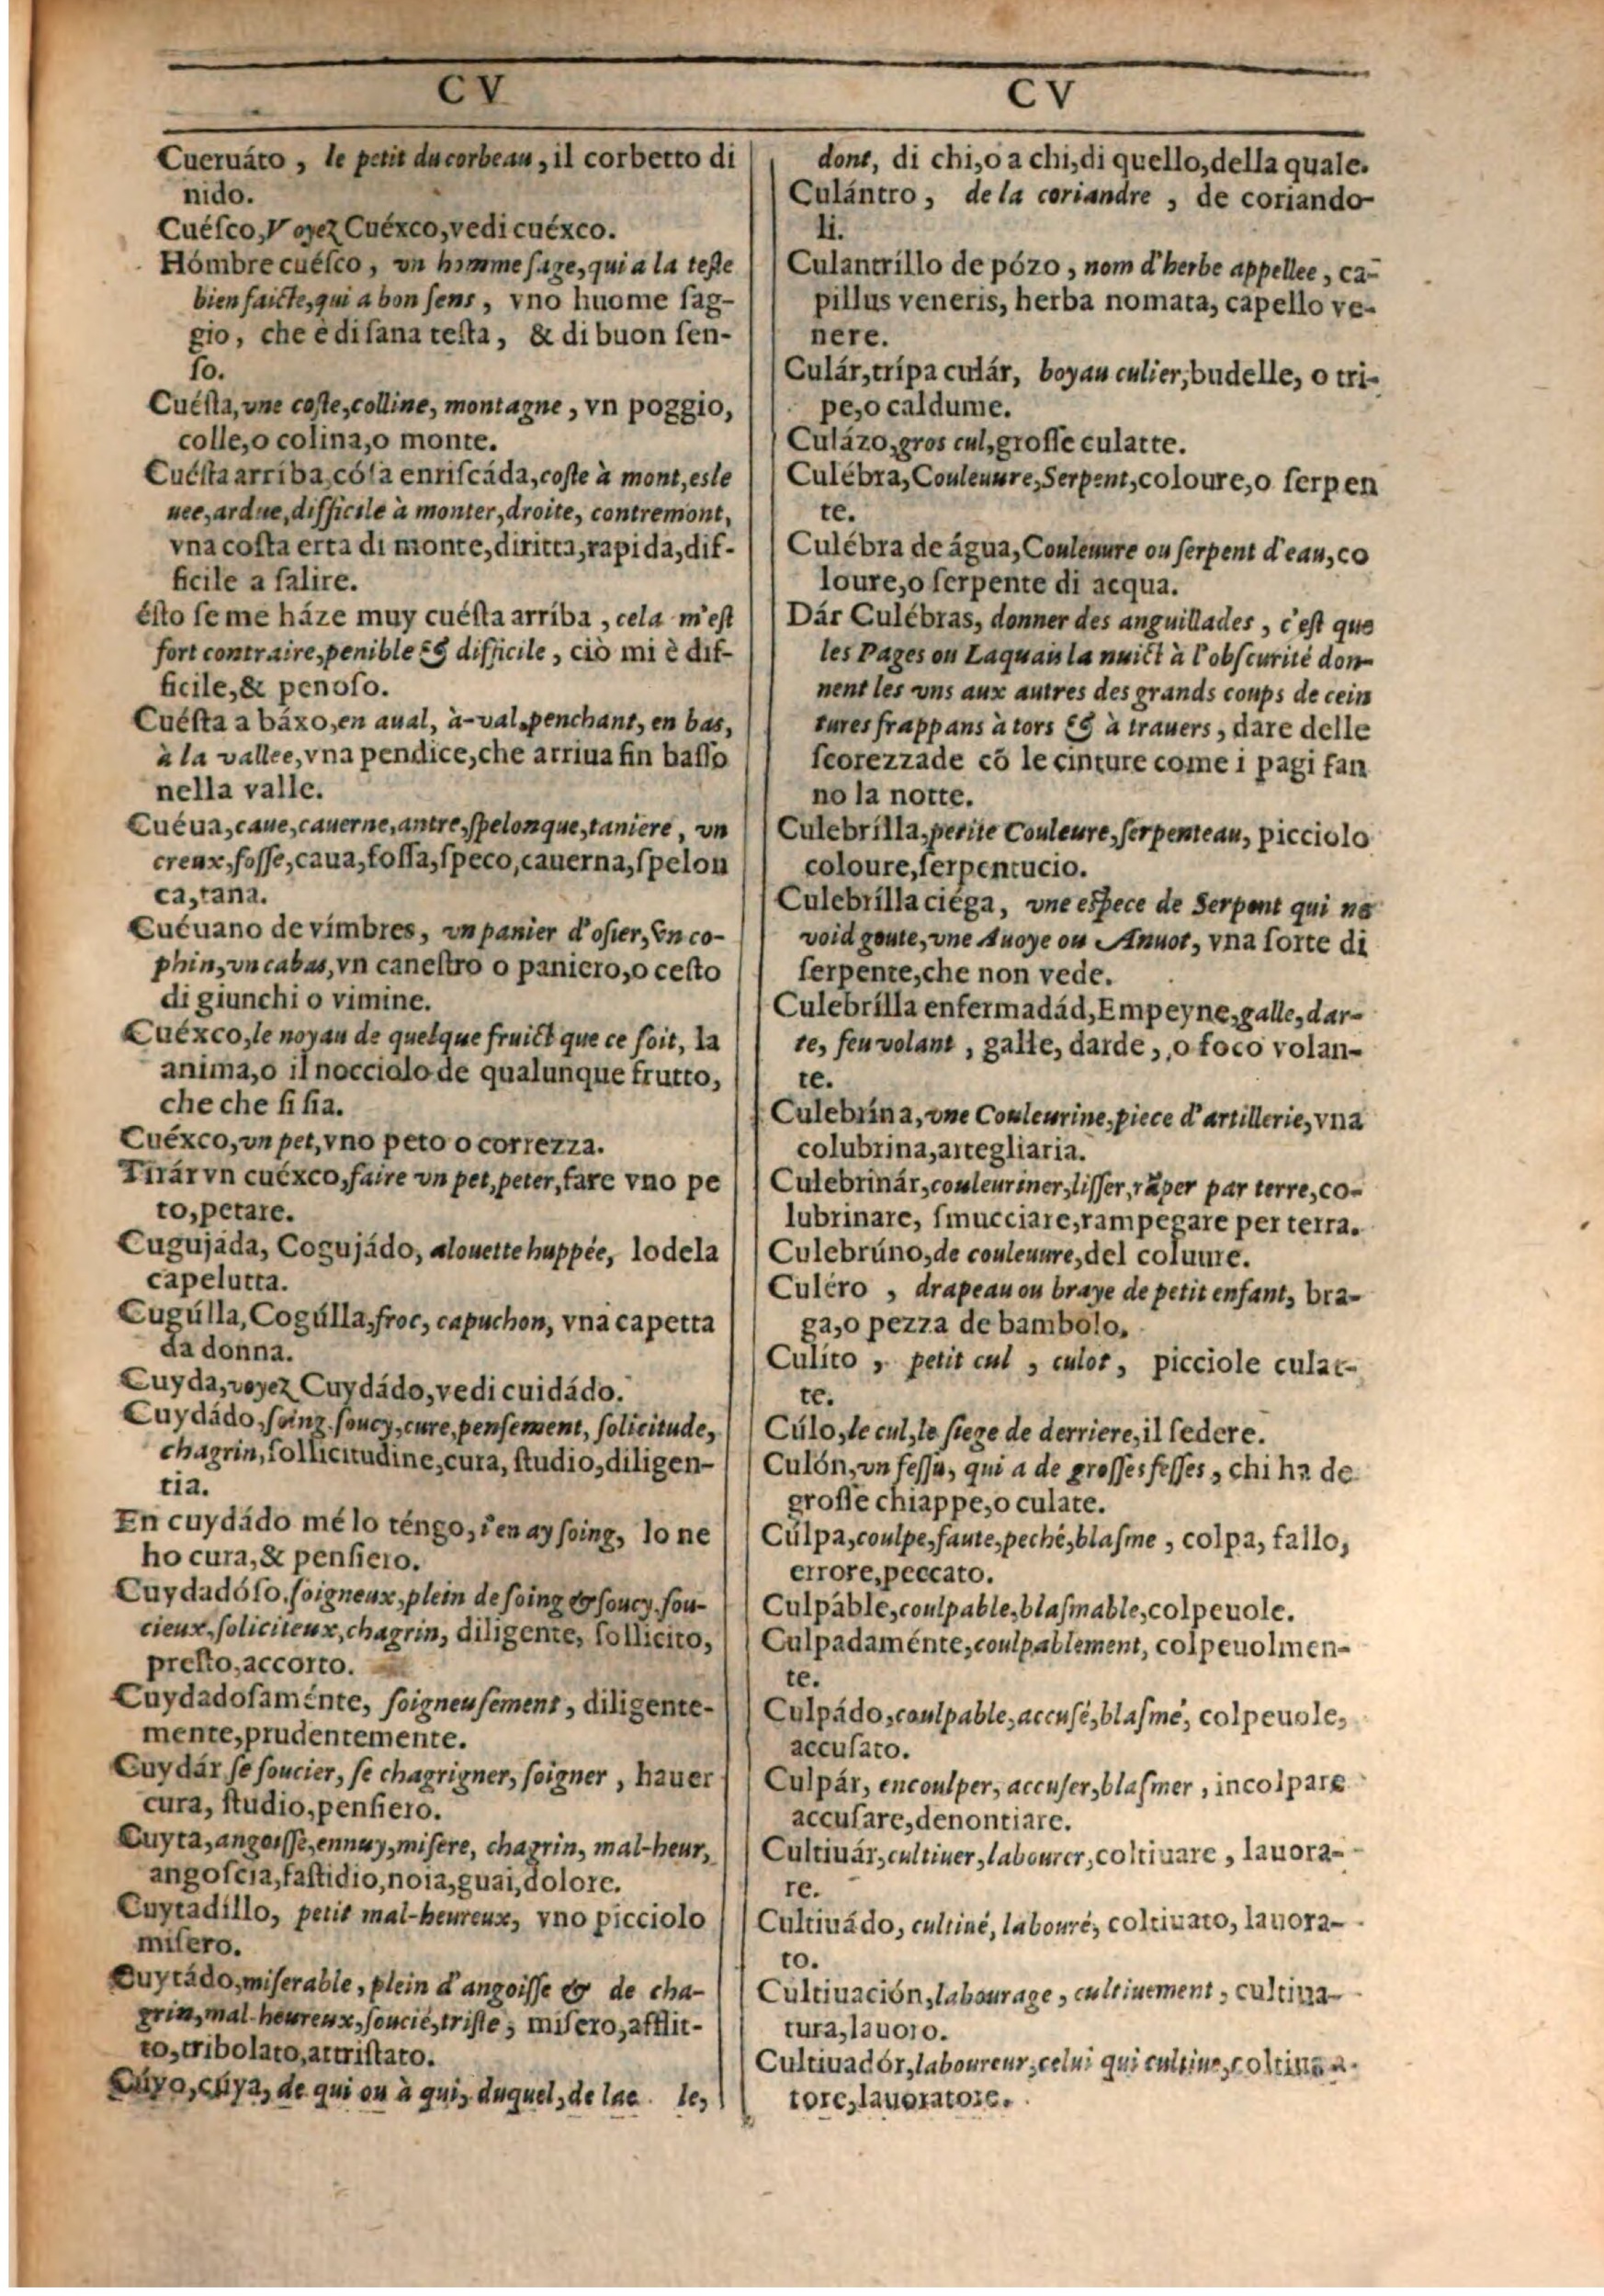 CV
Cueruáto, le petit du corbeau, il corbetto di
nido.
Cuésco, Voyez Cuéxco, vedi cuéxco.
Hómbre cuésco, vn homme sage, qui a la teste
bien faicte, qui a bon sens, vno huome sag-
gio, che è di sana testa, & di buon sen-
so.
Cuésta, vne coste, colline, montagne, vn poggio,
colle, o colina, o monte.
Cuésta arríba, cósa enriscáda, coste à mont, esle
uee, ardue, difficile à monter, droite, contremont,
vna costa erta di monte, diritta, rapida, dif-
ficile a salire.
ésto se me háze muy cuésta arríba, cela m'est
fort contraire, penible & difficile, ciò mi è dif-
ficile, & penoso.
Cuésta a báxo, en aual, à-val, penchant, en bas,
à la vallee, vna pendice, che arriua fin basso
nella valle.
Cuéua, caue, cauerne, antre, spelonque, taniere, vn
creux, fosse, caua, fossa, speco, cauerna, spelon
ca, tana.
Cuéuano de vímbres, vn panier d'osier, vn co-
phin, vn cabas, vn canestro o paniero, o cesto
di giunchi o vimine.
Cuéxco, le noyau de quelque fruict que ce soit, la
anima, o il nocciolo de qualunque frutto,
che che si sia.
Cuéxco, vn pet, vno peto o correzza.
Tirár vn cuéxco, faire vn pet, peter, fare vno pe
to, petare.
Cugujáda, Cogujádo, alouette huppée, lodela
capelutta.
Cugúlla, Cogúlla, froc, capuchon, vna capetta
da donna.
Cuyda, voyez Cuydádo, vedi cuidádo.
Cuydádo, soing, soucy, cure, pensement, solicitude,
chagrin, sollicitudine, cura, studio, diligen-
tia.
En cuydádo mé lo téngo, i'en ay soing, lo ne
ho cura, & pensiero.
Cuydadóso, soigneux, plein de soing & soucy, sou-
cieux, soliciteux, chagrin, diligente, sollicito,
presto, accorto.
Cuydadosaménte, soigneusement, diligente-
mente, prudentemente.
Cuydár se soucier, se chagrigner, soigner, hauer
cura, studio, pensiero.
Cuyta, angoisse, ennuy, misere, chagrin, mal-heur,
angoscia, fastidio, noia, guai, dolore.
Cuytadíllo, petit mal-heureux, vno picciolo
misero.
Cuytádo, miserable, plein d'angoisse & de cha-
grin, mal-heureux, soucié, triste, misero, afflit-
to, tribolato, attristato.
Cúyo, cúya, de qui ou à qui, duquel, de la le,
CV
dont, di chi, o a chi, di quello, della quale.
Culántro, de la coriandre, de coriando-
li.
Culantríllo de pózo, nom d'herbe appellee, ca-
pillus veneris, herba nomata, capello ve-
nere.
Culár, trípa culár, boyau culier, budelle, o tri-
pe, o caldume.
Culázo, gros cul, grosse culatte.
Culébra, Couleuure, Serpent, coloure, o serpen
te.
Culébra de água, Couleuure ou serpent d'eau, co
loure, o serpente di acqua.
Dár Culébras, donner des anguillades, c'est que
les Pages ou Laquais la nuict à l'obscurité don-
nent les vns aux autres des grands coups de cein
tures frappans à tors & à trauers, dare delle
scorezzade cō le cinture come i pagi fan
no la notte.
Culebrílla, petite Couleure, serpenteau, picciolo
coloure, serpentucio.
Culebrílla ciéga, vne espece de Serpent qui ne
void goute, vne Auoye ou Anuot, vna sorte di
serpente, che non vede.
Culebrílla enfermadád, Empeyne, galle, dar-
te, feu volant, galle, darde, o foco volan-
te.
Culebrína, vne Couleurine, piece d'artillerie, vna
colubrina, artegliaria.
Culebrinár, couleuriner, lisser, râper par terre, co-
lubrinare, smucciare, rampegare per terra.
Culebrúno, de couleuure, del coluure.
Culéro, drapeau ou braye de petit enfant, bra-
ga, o pezza de bambolo.
Culíto, petit cul, culot, picciole culat-
te.
Cúlo, le cul, le siege de derriere, il sedere.
Culón, vn fessu, qui a de grosses fesses, chi ha de
grosse chiappe, o culate.
Cúlpa, coulpe, faute, peché, blasme, colpa, fallo,
errore, peccato.
Culpáble, coulpable, blasmable, colpeuole.
Culpadaménte, coulpablement, colpeuolmen-
te.
Culpádo, coulpable, accusé, blasmé, colpeuole,
accusato.
Culpár, encoulper, accuser, blasmer, incolpare
accusare, denontiare.
Cultiuár, cultiuer, labourer, coltiuare, lauora-
re.
Cultiuádo, cultiué, labouré, coltiuato, lauora-
to.
Cultiuación, labourage, cultiuement, cultiua-
tura, lauoro.
Cultiuadór, laboureur, celui qui cultiue, coltiua
tore, lauoratore.